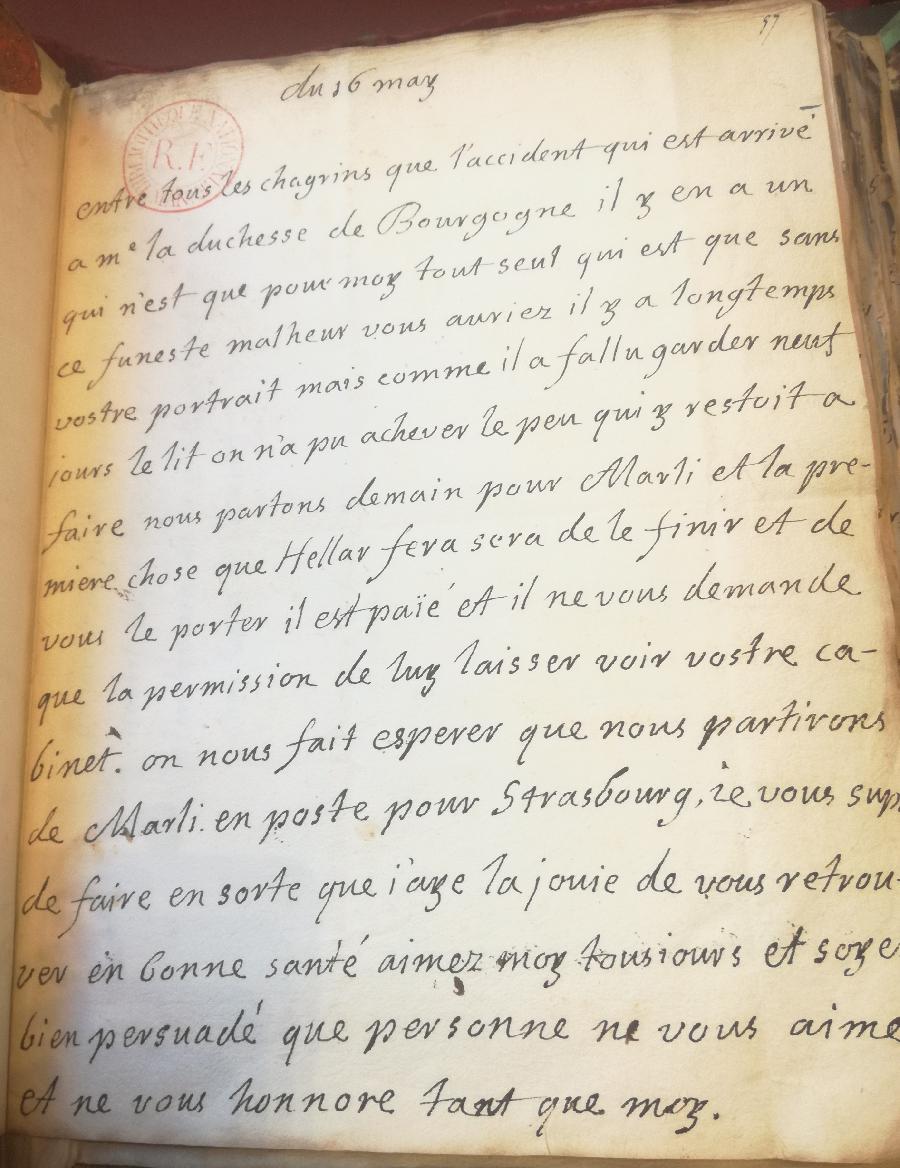 57
du 16 may
BIBLIOTHEQUE NATIONALE
R.F
entre tous les chagrins que l'accident qui est arrivé
a me la duchesse de Bourgogne il y en a un
qui n'est que pour moy tout seul qui est que sans
ce funeste malheur vous auriez il y a longtemps
vostre portrait mais comme il a fallu garder neuf
jours le lit on n'a pu achever le peu qui y restoit a
faire nous partons demain pour Marli et la pre-
miere chose que Hellar fera sera de le finir et de
vous le porter il est païé et il ne vous demande
que la permission de luy laisser voir vostre ca-
binet. on nous fait esperer que nous partirons
de Marli en poste pour Strasbourg, ie vous sup
de faire en sorte que i'aye la jouie de vous retrou-
ver en bonne santé aimez moy tousiours et soye
bien persuadé que personne ne vous aime
et ne vous honnore tant que moy.